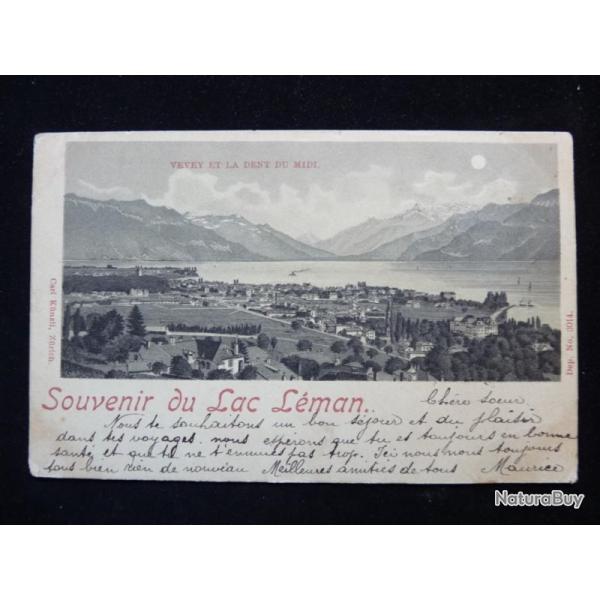 VEVEY ET LA DENT DU MIDI.
Carl Künzli, Zürich.
Dep. No. 3014.
Souvenir du Lac Léman.
Chère sœur,
Nous te souhaitons un bon séjour et du plaisir
dans tes voyages. nous esperons que tu es toujours en bonne
santé et que tu ne t'ennuies pas trop. Ici nous nous toujours
tous bien rien de nouveau Meilleures amitiés de tous Maurice
NaturaBuy